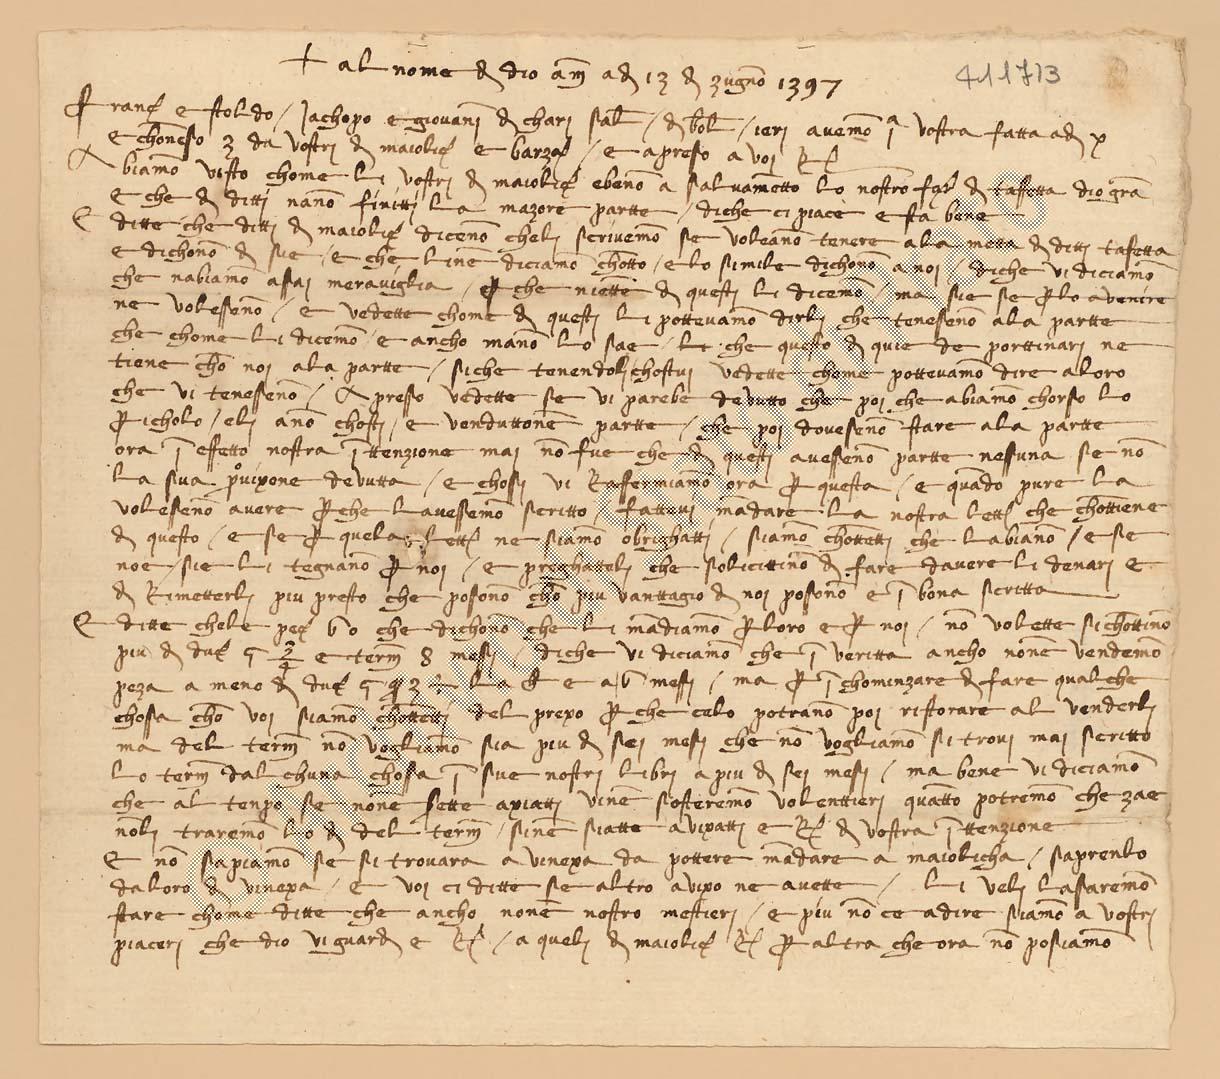 + al nome di dio am adi 13 di zugno 1397
411713
Franc e stoldo / Jachopo e giovani di chari sal / di bol / ieri avemo i vostra fatta adi x
e choneso 3 da vostri di maiolic e barzal / e apreso a voi R
Abiamo visto chome li vostri di maiolic ebeno a salvametto lo nostro di taffetta dio gra
e che di ditti nano finitti la mazore partte / diche ci piace e sta bene
E ditte che ditti di maiolic diceno cheli scrivemo se voleano tenere ala metta di ditti tafetta
e dichono di sie / e che line diciamo chotto / e lo simile dichono a noi / diche vi diciamo
che nabiamo asai meraviglia / per che niette di questi li dicemo / ma sie se per lo avenire
ne voleseno / e vedette chome di questi li pottevamo dirli che teneseno ala partte
che chome li dicemo / e ancho mano lo sae / li che questo di quie de porttinari ne
tiene cho noi ala partte / siche tenendoli chostui vedette chome pottevamo dire aloro
che vi teneseno / Apresso vedette se vi parebe devutto che poi che abiamo chorso lo
pericholo / eli ano chosti / e venduttone partte / che poi doveseno stare ala partte
ora i effetto nostra inttenzione mai no fue che di questi aveseno partte nessuna se no
la sua provixone devutta / e chossi vi Raffermiamo ora per questa / e quado pure la
voleseno avere per che lavessemo scritto / fattevi madare la nostra lett che chottiene
di questo / e se per quela lett ne siamo obrighatti / siamo chottetti che labiano / e se
noe / sie li tegnano per noi / e preghatteli che solicittino di fare davere li denari e
di Rimetterli piu presto che posono cho piu vanttagio di noi posono e i bona scritta
E ditte chele pec bo che dichono che li madiamo per loro e per noi / no volette si chottino
piu di duc 5 3/4 e term 8 messi / diche vi diciamo che i veritta ancho none vendemo
peza a meno di duc 5 la e a 6 messi / ma per i chominzare di fare qualche
chossa cho voi siamo chottetti del prexo per che celo potrano poi ristorare al venderli
ma del term no vogliamo sia piu di sei mesi che no vogliamo si trovi mai scritto
lo term dalchuna chossa i sue nostri libri a piu di sei mesi / ma bene vi diciamo
che al tenpo se none sette axiatti vine sosteremo volenttieri quatto potremo che zae
noli traremo lo di del term / sine siatte avixatti e R di vostra inttenzione
E no sapiamo se si trovara a vinexa da pottere madare a maiolicha / saprenlo
daloro di vinexa / e voi ci ditte se altro avixo ne avette / li veli lasaremo
stare chome ditte che ancho none nostro mestieri / e piu no ce adire siamo a vostri
piaceri che dio vi guardi e R / a queli di maiolic R per altra che ora no posiamo